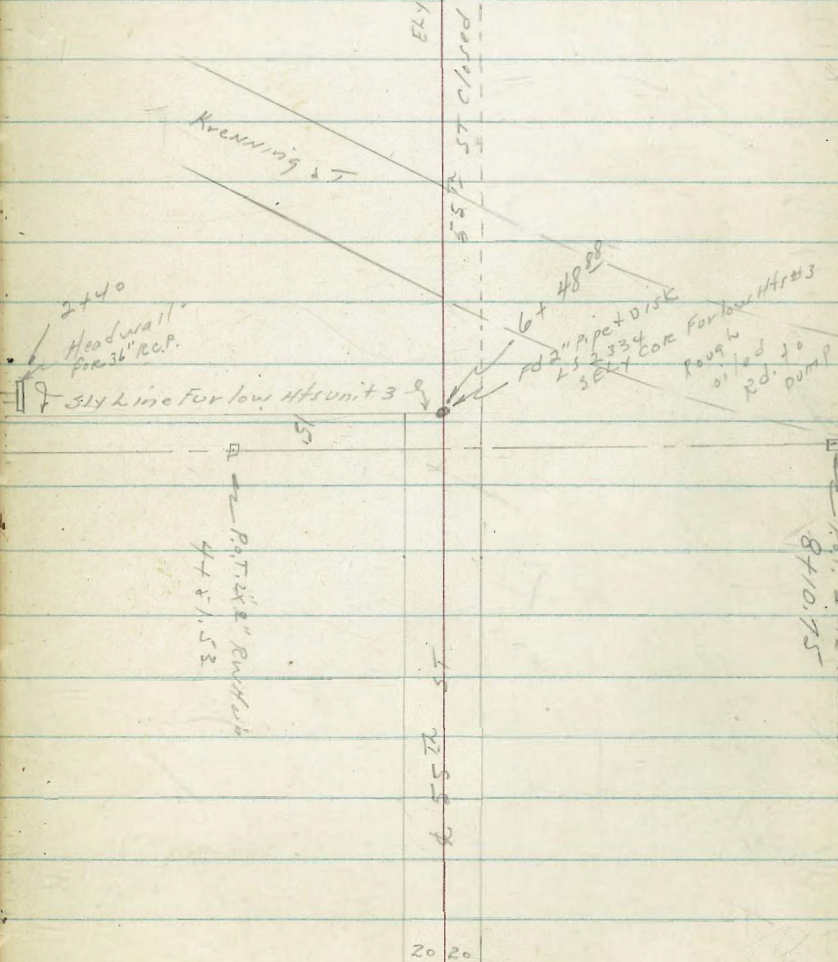 ELY
55TH ST Closed
Krenning ST
6+48 88
2+40
Headwall
For 36" R.C.P.
Fd 2" Pipe + Disk
LS 2334
SELY COR Furlow Hts #3
Rough
oiled
Rd. to
Dump
SLY Line Furlow Hts unit 3
15
P.O.T. 2x2" RW Hub
4+51.53
8+10.75
℄ 55TH ST
20 20